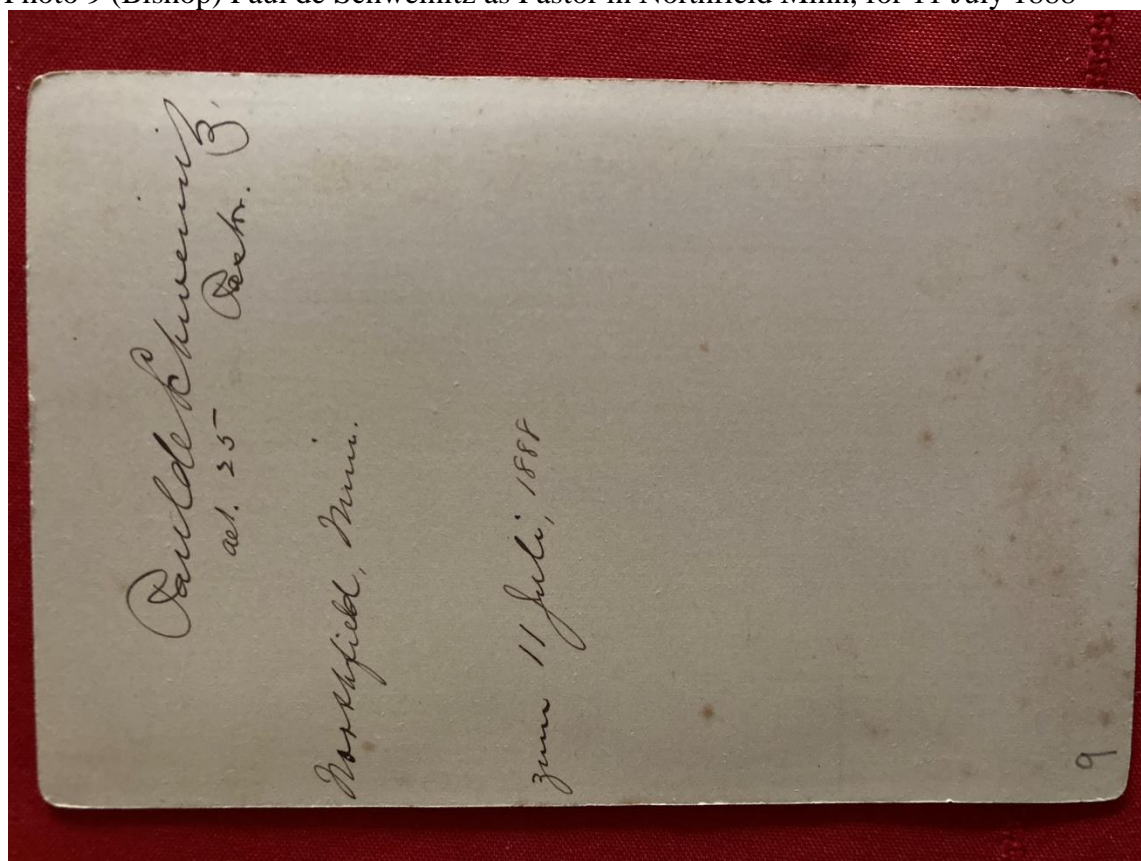 Photo 9 (Bishop) Paul de Schweinitz as Pastor in Northfield Minn, for 11 July 1888
Paul de Schweinitz,
aet. 25 Pastor.
Northfield, Minn.
zum 11 Juli, 1888
9